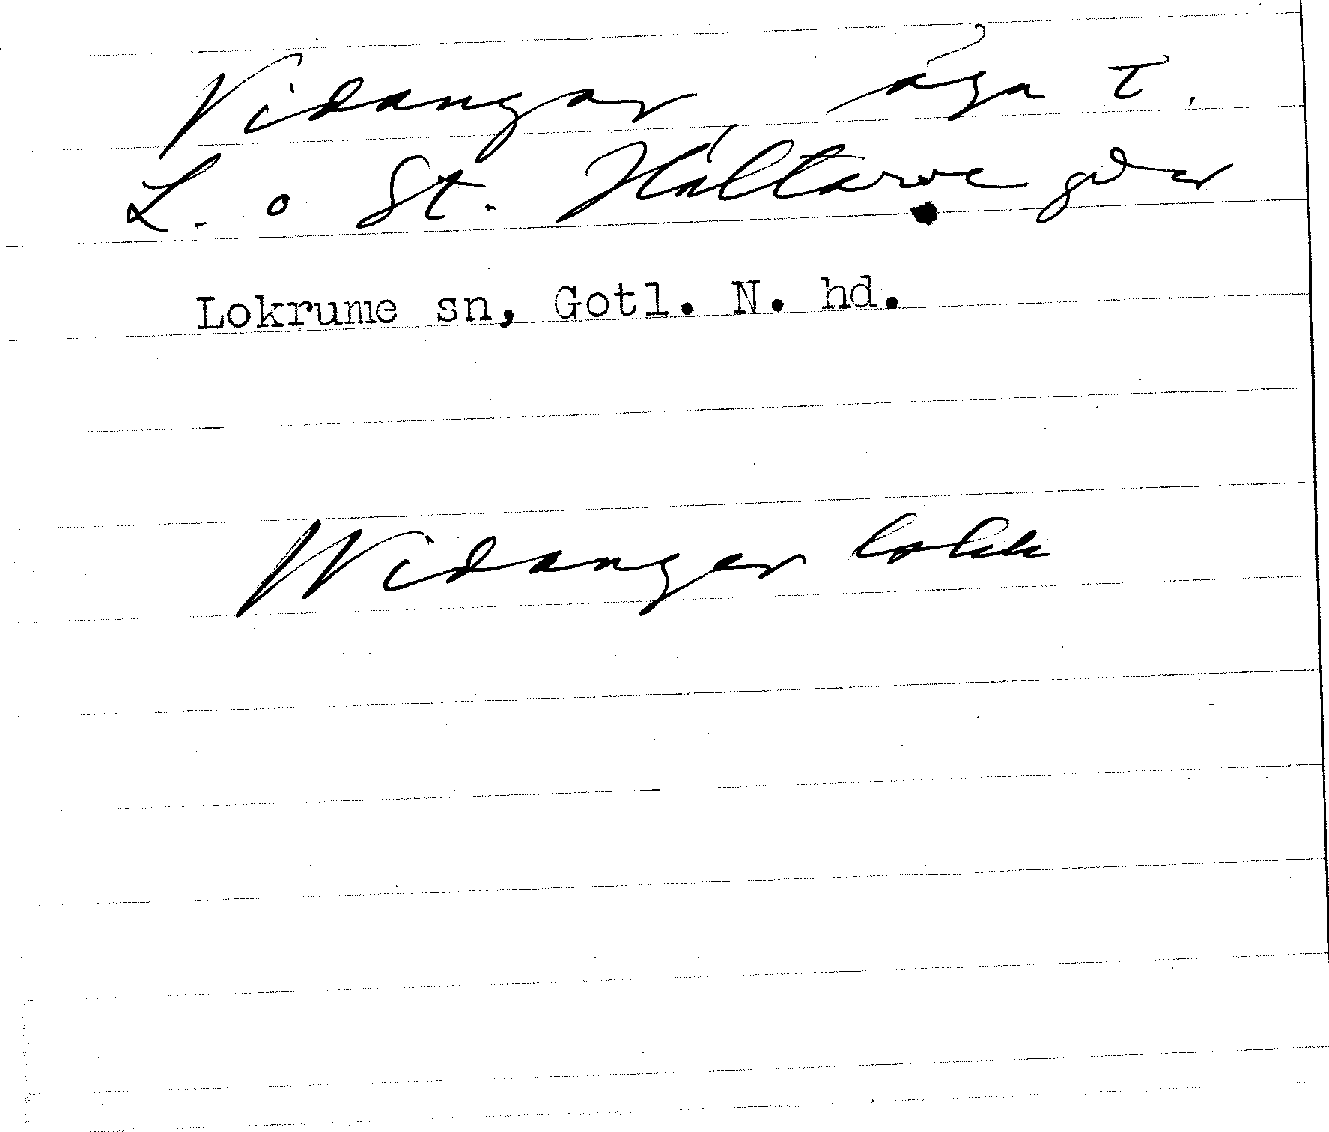 Vidangar, äga t.
L. o St. Haltarve gdar
Lokrume sn, Gotl. N. hd.
Widanger lokk